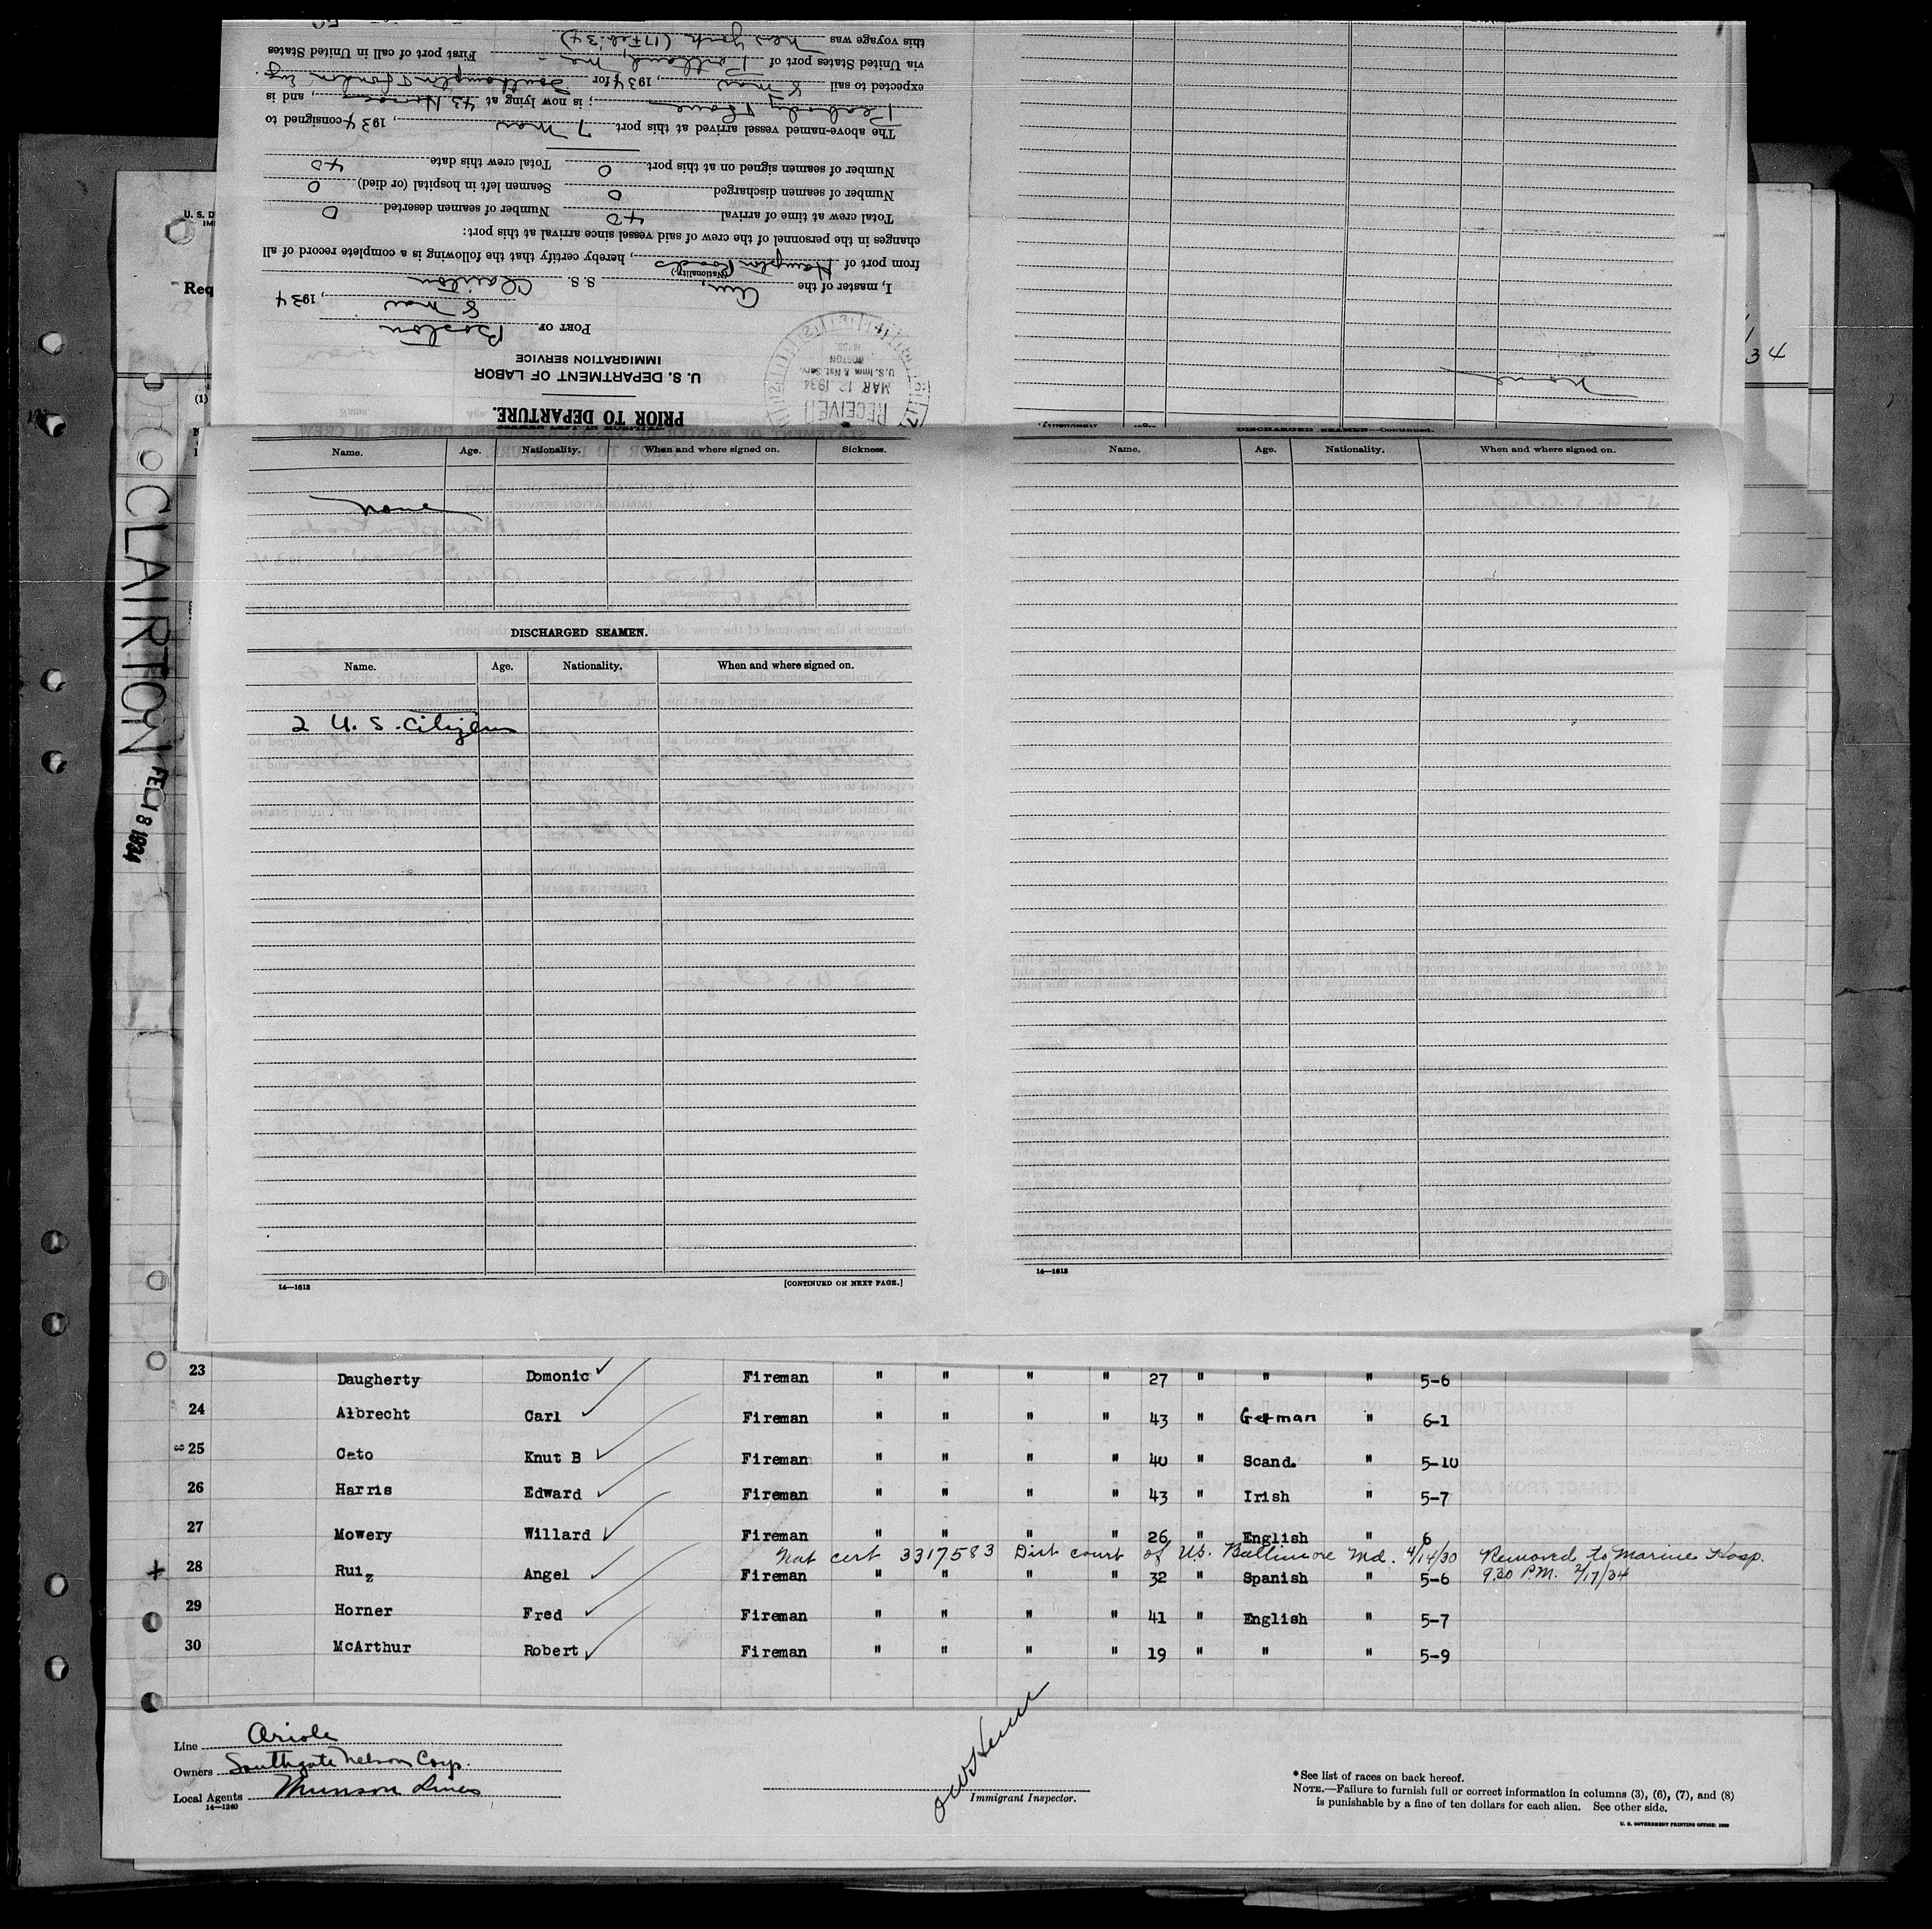 this voyage was New York (17 Feb. 34)
via United States port of Portland, Me. First port of call in United States
expected to sail 8 Mar, 1934 for Southampton & London Eng
Peabody & Lane; is now lying at 43 , and is
The above-named vessel arrived at this port 7 Mar, 1934 consigned to
Number of seamen signed on at this port 0 Total crew this date 40
Number of seamen discharged 0 Seamen left in hospital (or died) 0
Total crew at time of arrival 40 Number of seamen deserted 0
changes in the personnel of the crew of said vessel since arrival at this port:
from port of Hampton Roads, hereby certify that the following is a complete record of all
(Nationality.)
I, master of the Am. S. S. Clairton
8 Mar, 1934
PORT OF Boston
IMMIGRATION SERVICE
U. S. DEPARTMENT OF LABOR
PRIOR TO DEPARTURE.
RECEIVED
MAR 12 1934
U. S. Imm. & Nat. Serv.
BOSTON
MASS.
None
U. S. D
Req
(1)
34
CLAIRTON FEB 18 1934
Name. Age. Nationality. When and where signed on. Sickness.
None
DISCHARGED SEAMEN.
Name. Age. Nationality. When and where signed on.
2 U. S. Citizens
14—1613 [CONTINUED ON NEXT PAGE.]
DISCHARGED SEAMEN—Continued.
Name. Age. Nationality. When and where signed on.
14—1613
23 Daugherty Domonic Fireman " " " " 27 " " " 5-6
24 Albrecht Carl Fireman " " " " 43 " German " 6-1
25 Cato Knut B Fireman " " " " 40 " Scand. " 5-10
26 Harris Edward Fireman " " " " 43 " Irish " 5-7
27 Mowery Willard Fireman " " " " 26 " English " 6
Nat cert 3317583 Dist court of US. Baltimore Md. 4/14/30 Removed to Marine Hosp.
28 Ruiz Angel Fireman " " " " 32 " Spanish " 5-6 9.30 PM. 2/17/34
29 Horner Fred Fireman " " " " 41 " English " 5-7
30 McArthur Robert Fireman " " " " 19 " " " 5-9
Line Oriole
Owners Southgate Nelson Corp.
Local Agents Munson Lines
14—1240
Immigrant Inspector.
* See list of races on back hereof.
NOTE.—Failure to furnish full or correct information in columns (3), (6), (7), and (8)
is punishable by a fine of ten dollars for each alien. See other side.
U. S. GOVERNMENT PRINTING OFFICE: 1930